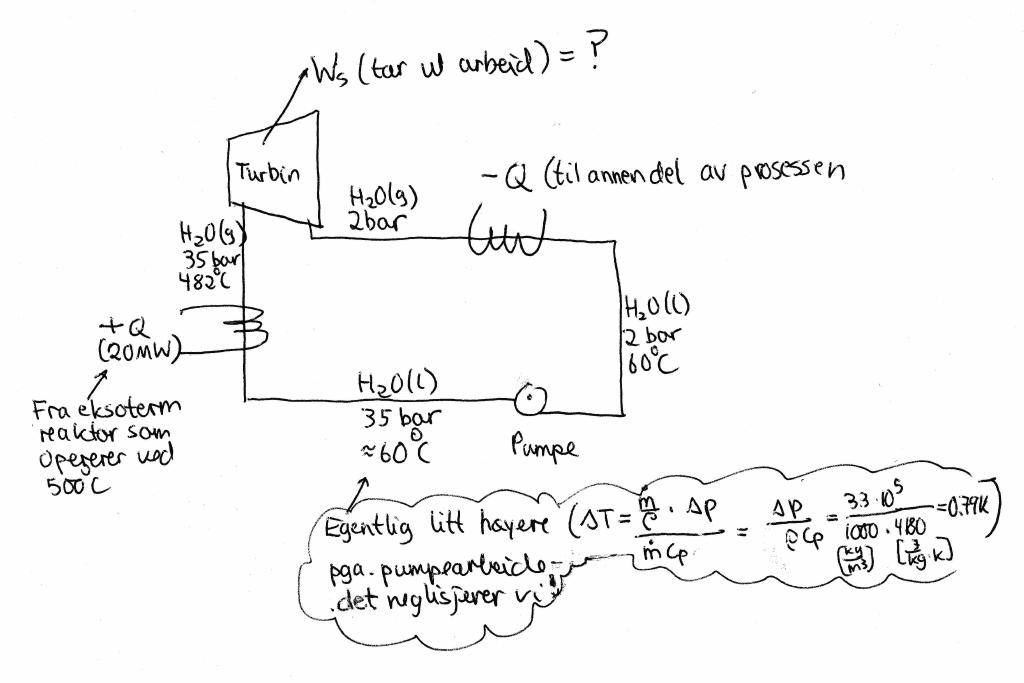 Ws (tar ut arbeid) = ?
Turbin
H₂O(g)
2bar
-Q (til annen del av prosessen
H₂O(g)
35 bar
482°C
+Q
(20MW)
H₂O(l)
2 bar
60°C
Fra eksoterm
reaktor som
opererer ved
500°C
H₂O(l)
35 bar
≈60°C
Pumpe
Egentlig litt høyere (ΔT = ṁ/ρ · Δp / ṁ Cp = Δp / ρ Cp = 33·10⁵ / 1000 · 4180 = 0.79K)
[kg/m³] [J/kg·K]
pga. pumpearbeide -
det neglisjerer vi!